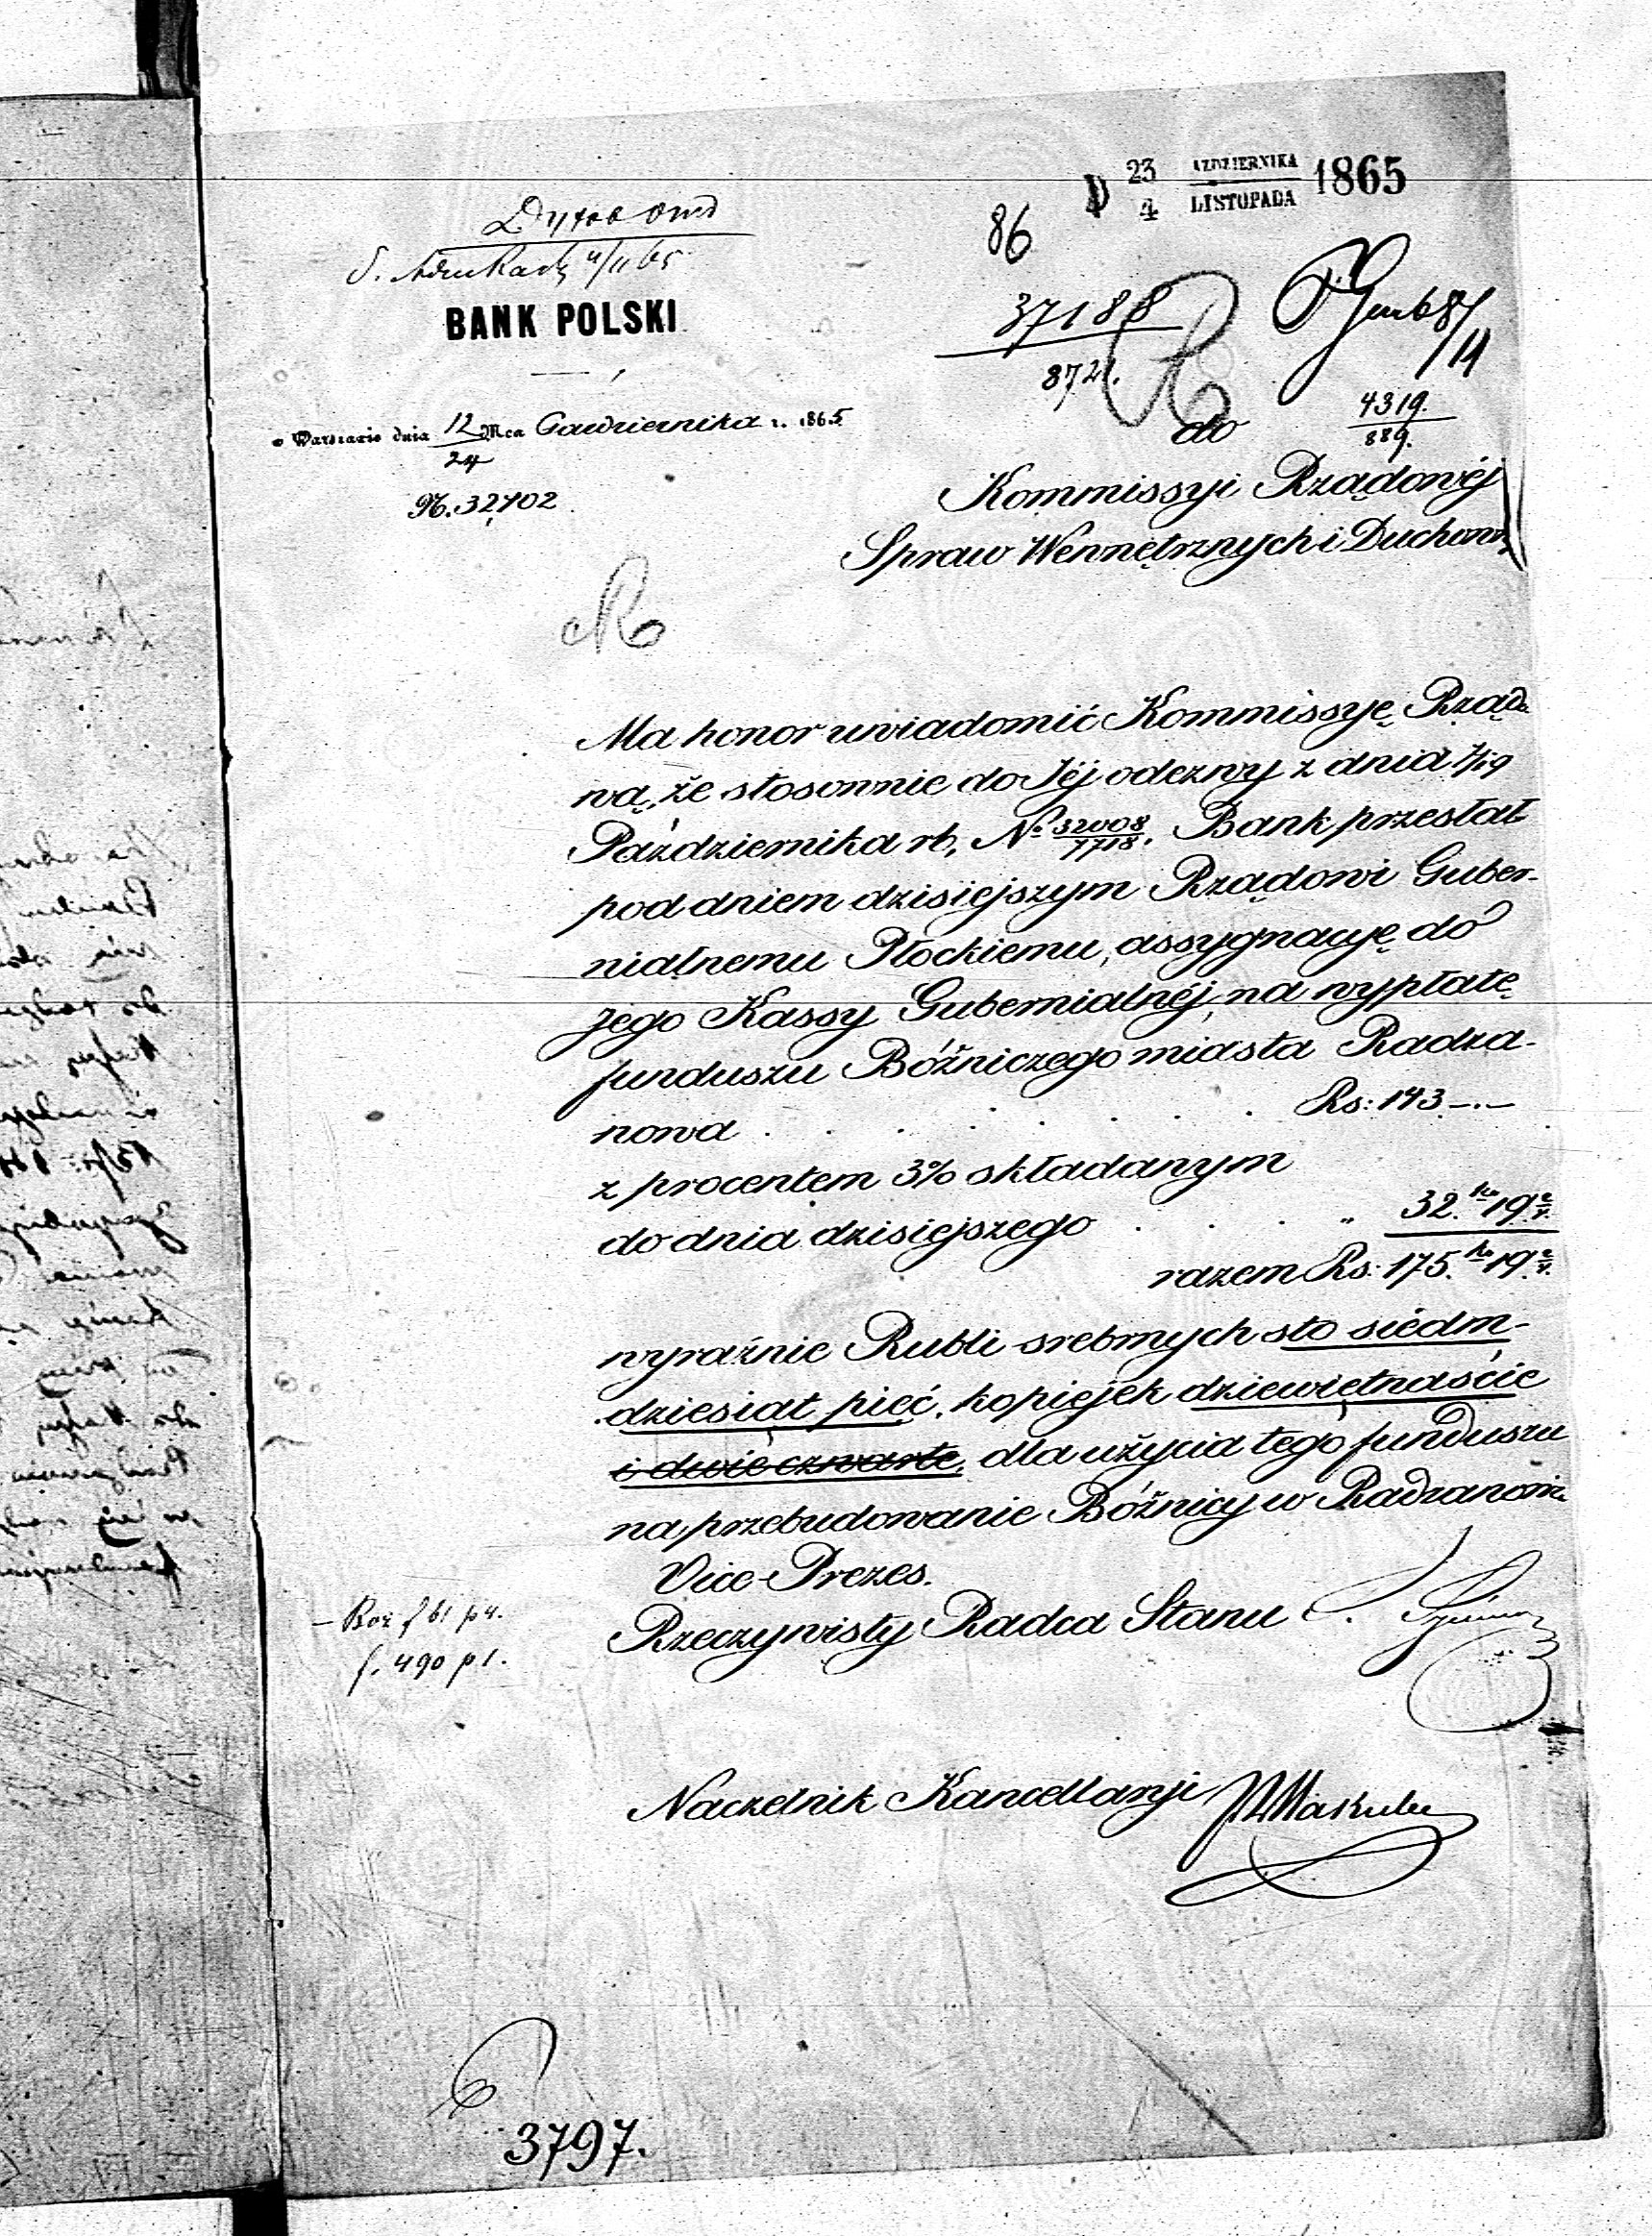 D 23 AZDZIERNIKA 1865
4 LISTOPADA
86
4/11 65
BANK POLSKI
37188
872
84/11
w Warszawie dnia 12 Mca Października r. 1865
24
do
4319.
889.
N. 32702
Kommissyi Rządowéj
Spraw Wewnętrznych i Duchown.
Ma honor uwiadomić Kommissyę Rządo
wą, że stosownie do Jéj odezwy z dnia 7/19
Października rb, No 32008/7718. Bank przesłał
pod dniem dzisiejszym Rządowi Guber-
nialnemu Płockiemu, assygnacyę do
jego Kassy Gubernialnéj, na wypłatę
funduszu Bóżniczego miasta Radza-
nowa . . . . . . . Rs: 143 _._
z procentem 3% składanym
do dnia dzisiejszego . . . " 32. ko 19 2/4.
razem Rs: 175. ko 19 2/4.
wyraźnie Rubli srebrnych sto siédm-
dziesiąt pięć, kopiejek dziewiętnaście
i dwie czwarte, dla użycia tego funduszu
na przebudowanie Bóżnicy w Radzanowie
Vice-Prezes.
Rzeczywisty Radca Stanu
– Boż f 61 p 4.
f. 490 p 1.
Naczelnik Kancellaryi
3797.